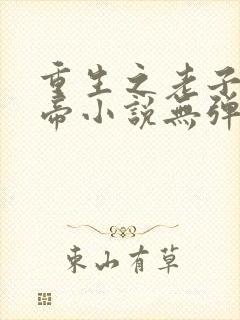 重生之老子
帝小說無彈
東山有草